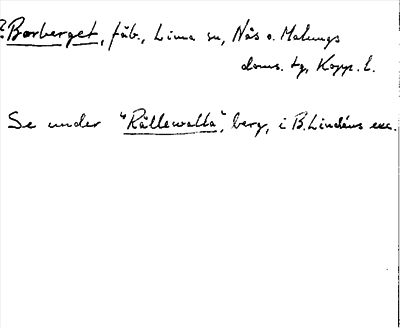 ? Borberget, fäb., Lima sn, Nås o. Malungs
doms. tg, Kopp. l.
Se under "Rållewalla", berg, i B. Lindéns exc.